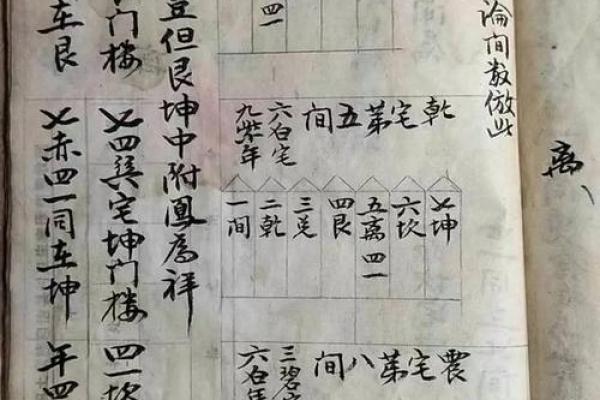 离
論间数倣此
四一
乾宅第五间
六白宅
九紫年
七坤
六坎
五离四一
四艮
三兑
二乾
一间
震宅第八间
三碧
六白年
但艮坤中附鳳為祥
门楼 七四巽宅坤门楼 四一坎
在艮 七赤四一同在坤 年四